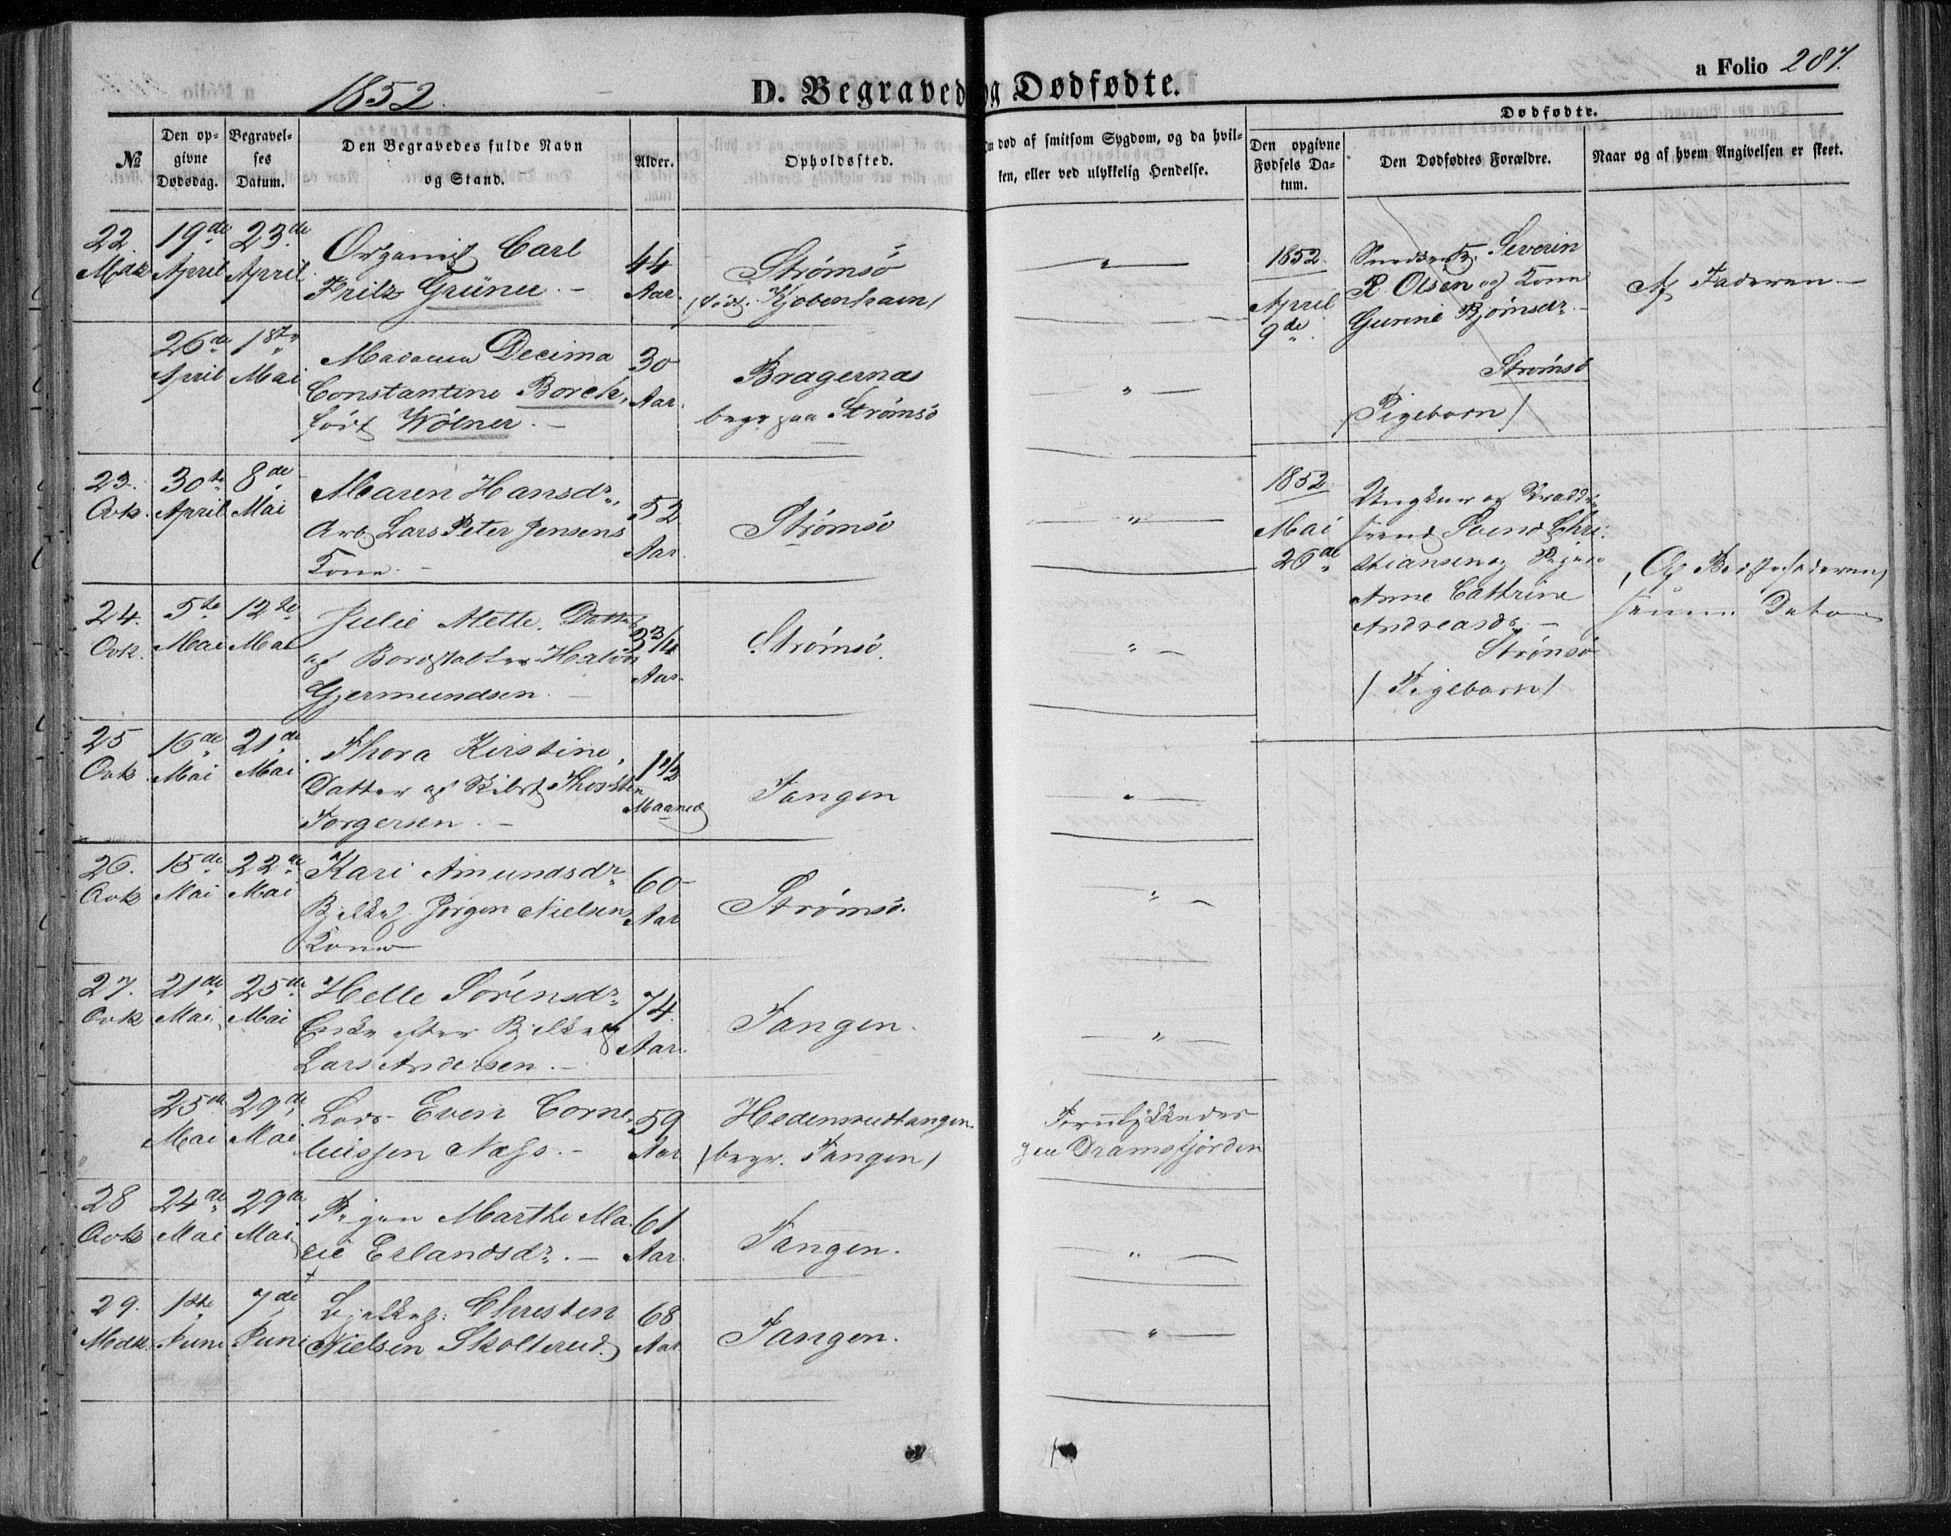 1852.
D. Begravede og Dødfødte.
a Folio 287.
№
Den opgivne Dødsdag.
Begravelses Datum.
Den Begravedes fulde Navn og Stand.
Alder.
Opholdssted.
død af smitsom Sygdom, og da hvilken, eller ved ulykkelig Hendelse.
Dødfødte.
Den opgivne Fødsels Datum.
Den Dødfødtes Forældre.
Naar og af hvem Angivelsen er skeet.
22. Mdk
19de April
23de April
Organist Carl
Fritz Grüner. –
44 Aar.
Strømsö
(född. Kjøbenhavn)
26de April
1ste Mai
Madame Decima
Constantine Borch,
født Wölner. –
30 Aar.
Bragernæs
begr. paa Strømsö
23. Qvk.
30te April
8de Mai
Maren Hansdr.
Arb. Lars Peter Jensens
Kone. –
52 Aar.
Strømsö
24. Qvk.
5te Mai
12te Mai
Julie Mette. Datter
af Bordstabler Halvor
Gjermundsen. –
3 3/4 Aar.
Strømsö.
25 Qvk
16de Mai
21de Mai
Thora Kirstine,
Datter af Skibst. Thorsten
Torgersen. –
1 1/2 Maaned
Tangen
26. Qvk
15de Mai
22de Mai
Kari Amundsdr.
Jörgen Nielsens
Kone
60 Aar
Strømsö.
27. Qvk
21de Mai
25de Mai
Helle Sörensdr.
Enke efter
Lars Andersen. –
74 Aar.
Tangen.
25de Mai
29de Mai
Lods Even Corne-
liussen Næss. –
59 Aar
Hedensrudtangen
(begr. Tangen)
Forulykkedes
Dramsfjorden
28 Qvk
24de Mai
29de Mai
Pigen Marthe Ma-
rie Erlandsdr. –
61 Aar.
Tangen.
29. Mdk.
1ste Juni
7de Juni
Christen
Nielsen Skolterud.
68 Aar
Tangen.
1852.
April
9de
Severin
R. Olsen og Kone
Gunne Björnsdr. –
Strømsö
(Pigebarn)
Af Faderen –
1852.
Mai
26de
Ungkarl og
Svend Chri-
stiansen og Pigen
Anne Cathrine
Andreasdr. –
Strømsö
(Pigebarn)
(Af Bestefaderen)
samme Dato